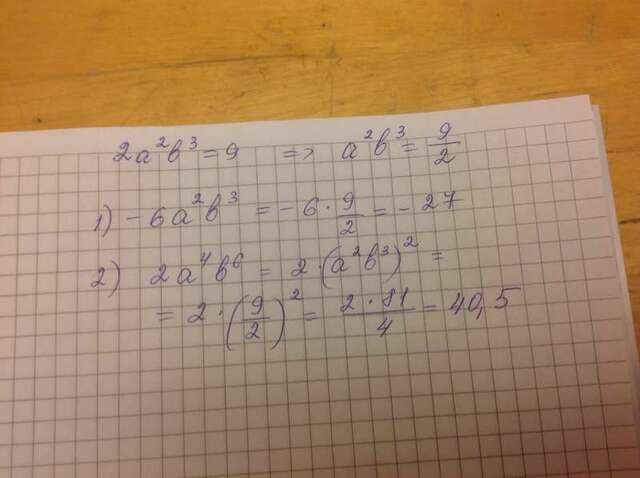 2a²b³ = 9 => a²b³ = 9/2
1) - 6a²b³ = - 6 · 9/2 = - 27
2) 2a⁴b⁶ = 2 · (a²b³)² =
= 2 · (9/2)² = 2 · 81/4 = 40,5